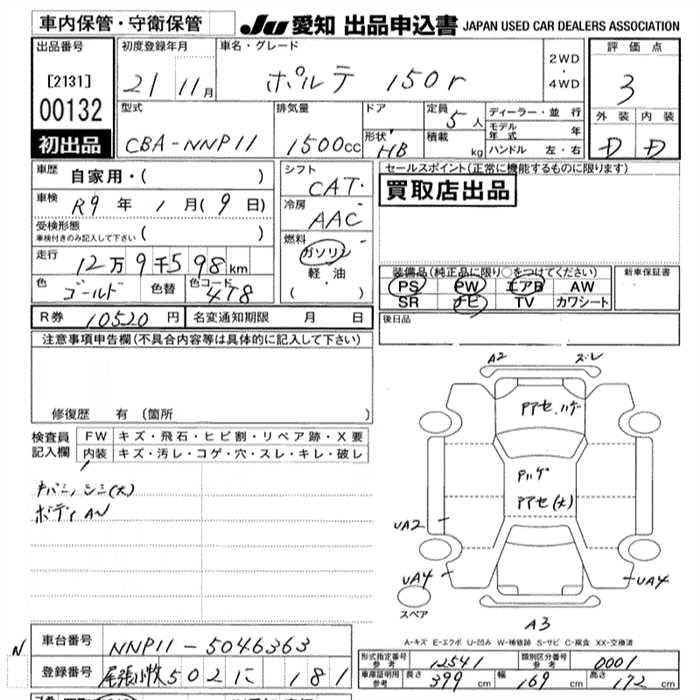 車内保管・守衛保管 JU 愛知 出品申込書 JAPAN USED CAR DEALERS ASSOCIATION
出品番号 初度登録年月 車名・グレード 評価点
[2131] 21 11月 ポルテ 150r 2WD・4WD 3
00132 型式 排気量 ドア 定員 5人 ディーラー・並行 外装 内装
初出品 CBA-NNP11 1500cc 形状 HB 積載 kg モデル年式 年 D D
ハンドル 左・右
車歴 自家用・( ) シフト CAT・ セールスポイント(正常に機能するものに限ります)
車検 R9年 1月(9日) 冷房 AAC 買取店出品
受検形態 ( )
車検付きのみ記入して下さい
走行 12万9千598km 燃料 ガソリン
軽・油
( )
装備品(純正品に限り○をつけてください) 新車保証書
色 ゴールド 色替 色コード 4T8 PS PW エアB AW
SR ナビ TV カワシート
R券 10520円 名変通知期限 月 日 後日品
注意事項申告欄(不具合内容等は具体的に記入して下さい)
A2 ズレ
アアセ.ハゲ
修復歴 有 (箇所 )
検査員記入欄 FW キズ・飛石・ヒビ割・リペア跡・X要
内装 キズ・汚レ・コゲ・穴・スレ・キレ・破レ
Pハゲ
アアセ(大)
(大)
ボディAN
UA2
UA4 UA4
スペア
A3
A-キズ E-エクボ U-凹み W-補修跡 S-サビ C-腐食 XX-交換済
N 車台番号 NNP11-5046363
登録番号 尾張小牧502に 181
形式指定番号 参考 12541 類別区分番号 参考 0001
車庫証明用 参考 長さ 399cm 幅 169cm 高さ 172cm